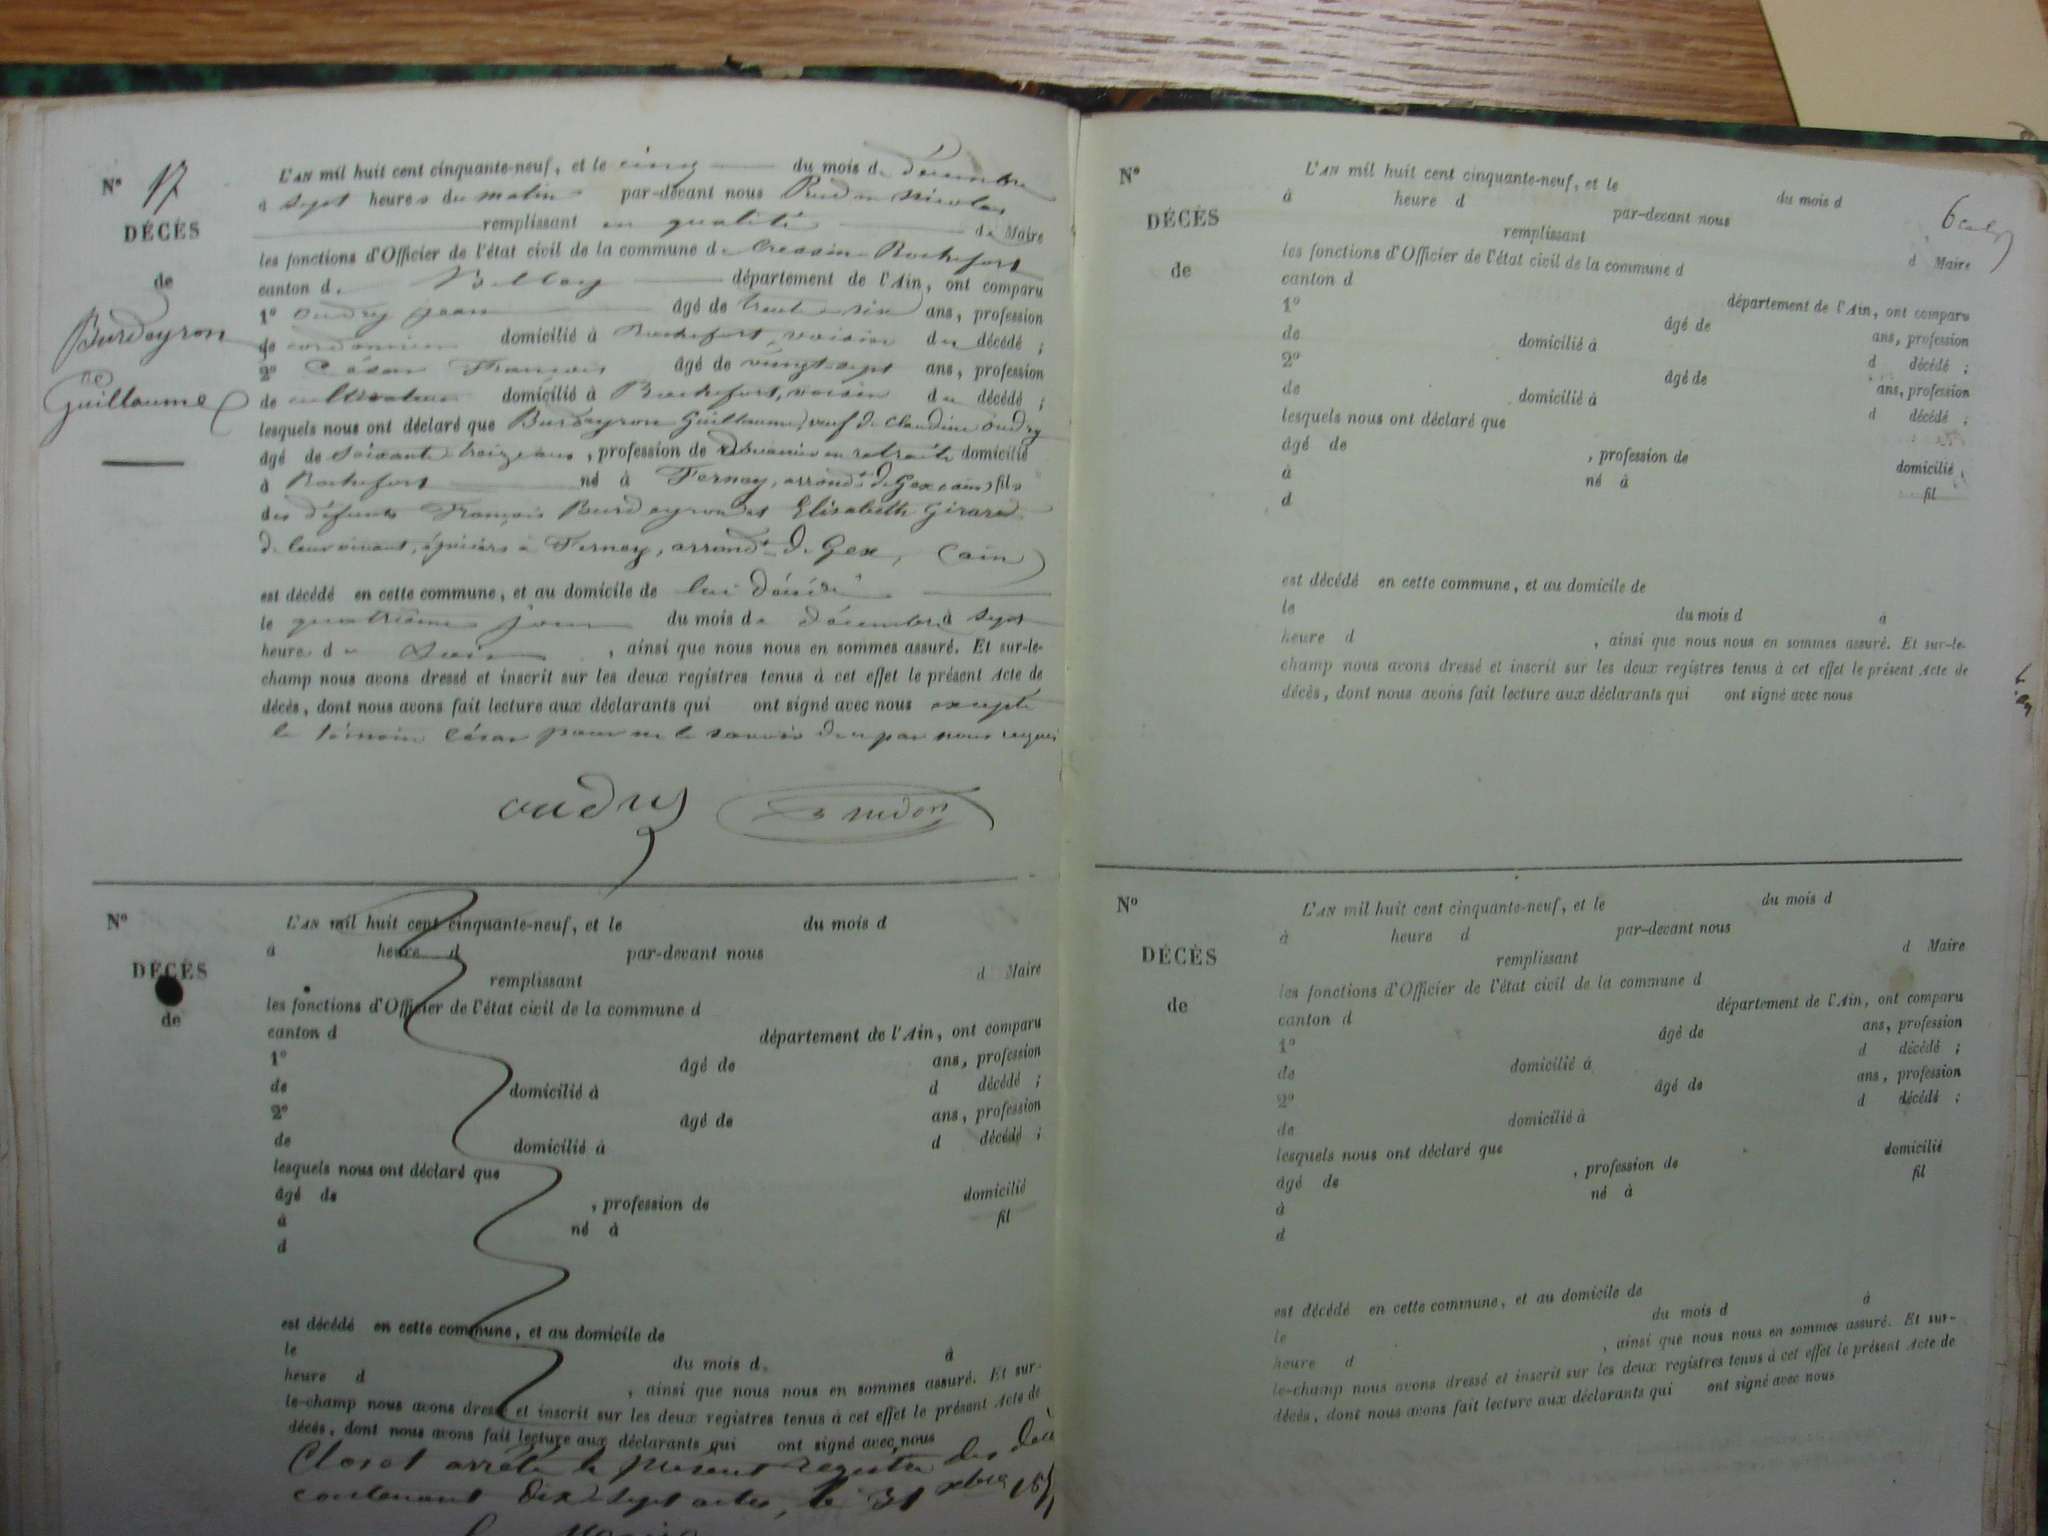 N° 17
DÉCÈS
de
Burdeyron
Guillaume
L'AN mil huit cent cinquante-neuf, et le cinq du mois de décembre
à sept heures du matin par-devant nous Prudon Nicolas
remplissant en qualité de Maire
les fonctions d'Officier de l'état civil de la commune de Cressin Rochefort
canton de Belley département de l'Ain, ont comparu
1° oudry jean âgé de trente six ans, profession
de cordonnier domicilié à Rochefort, voisin du décédé ;
2° César François âgé de vingt-sept ans, profession
de cultivateur domicilié à Rochefort, voisin du décédé ;
lesquels nous ont déclaré que Burdeyron Guillaume, veuf de Claudine oudry
âgé de soixante treize ans, profession de Douanier en retraite domicilié
à Rochefort né à Ferney, arrondt de Gex (ain) fils
des défunts François Burdeyron et Elisabeth Girard
de leur vivant, épiciers à Ferney, arrondt de Gex, (ain)
est décédé en cette commune, et au domicile de lui décédé
le quatrième jour du mois de décembre à sept
heures du soir, ainsi que nous nous en sommes assuré. Et sur-le-
champ nous avons dressé et inscrit sur les deux registres tenus à cet effet le présent Acte de
décès, dont nous avons fait lecture aux déclarants qui ont signé avec nous excepté
le témoin César pour ne le savoir de par nous requis
oudry Prudon
N°
DÉCÈS
de
L'AN mil huit cent cinquante-neuf, et le du mois d
à heure d par-devant nous
remplissant d Maire
les fonctions d'Officier de l'état civil de la commune d
canton d département de l'Ain, ont comparu
1° âgé de ans, profession
de domicilié à d décédé ;
2° âgé de ans, profession
de domicilié à d décédé ;
lesquels nous ont déclaré que
âgé de , profession de domicilié
à né à fil
d
est décédé en cette commune, et au domicile de
le du mois d à
heure d , ainsi que nous nous en sommes assuré. Et sur-
le-champ nous avons dressé et inscrit sur les deux registres tenus à cet effet le présent Acte de
décès, dont nous avons fait lecture aux déclarants qui ont signé avec nous
Clos et arrêté le présent registre des déc
contenant dix-sept actes, le 31 xbre 185
le Maire
N°
DÉCÈS
de
L'AN mil huit cent cinquante-neuf, et le du mois d
à heure d par-devant nous
remplissant d Maire
les fonctions d'Officier de l'état civil de la commune d
canton d département de l'Ain, ont comparu
1° âgé de ans, profession
de domicilié à d décédé ;
2° âgé de ans, profession
de domicilié à d décédé ;
lesquels nous ont déclaré que
âgé de , profession de domicilié
à né à fil
d
est décédé en cette commune, et au domicile de
le du mois d à
heure d , ainsi que nous nous en sommes assuré. Et sur-le-
champ nous avons dressé et inscrit sur les deux registres tenus à cet effet le présent Acte de
décès, dont nous avons fait lecture aux déclarants qui ont signé avec nous
N°
DÉCÈS
de
L'AN mil huit cent cinquante-neuf, et le du mois d
à heure d par-devant nous
remplissant d Maire
les fonctions d'Officier de l'état civil de la commune d
canton d département de l'Ain, ont comparu
1° âgé de ans, profession
de domicilié à d décédé ;
2° âgé de ans, profession
de domicilié à d décédé ;
lesquels nous ont déclaré que
âgé de , profession de domicilié
à né à fil
d
est décédé en cette commune, et au domicile de
le du mois d à
heure d , ainsi que nous nous en sommes assuré. Et sur-
le-champ nous avons dressé et inscrit sur les deux registres tenus à cet effet le présent Acte de
décès, dont nous avons fait lecture aux déclarants qui ont signé avec nous